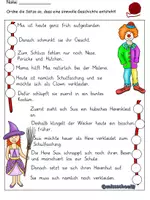 Name:
Ordne die Sätze so, dass eine sinnvolle Geschichte entsteht!
Mia ist heute ganz früh aufgestanden.
Danach schminkt sie ihr Gesicht.
Zum Schluss fehlen nur noch Nase,
Perücke und Hütchen.
Mama hilft Mia. Natürlich bei der Malerei.
Heute ist nämlich Schulfasching und sie
möchte sich als Clown verkleiden.
Dafür schlüpft sie zuerst in ein
buntes Kostüm.
Zuerst sucht sie sich ein hübsches Hexenkleid
an.
Deshalb klingelt der Wecker heute
Lisa möchte heuer als Hexe verkleidet zum
Schulfasching gehen.
Die Hexe Lisa schnappt sich noch ihren Besen
und marschiert los zur Schule.
Danach setzt sie sich den tollen Hexenhut auf.
Sie muss sich nämlich noch verkleiden.